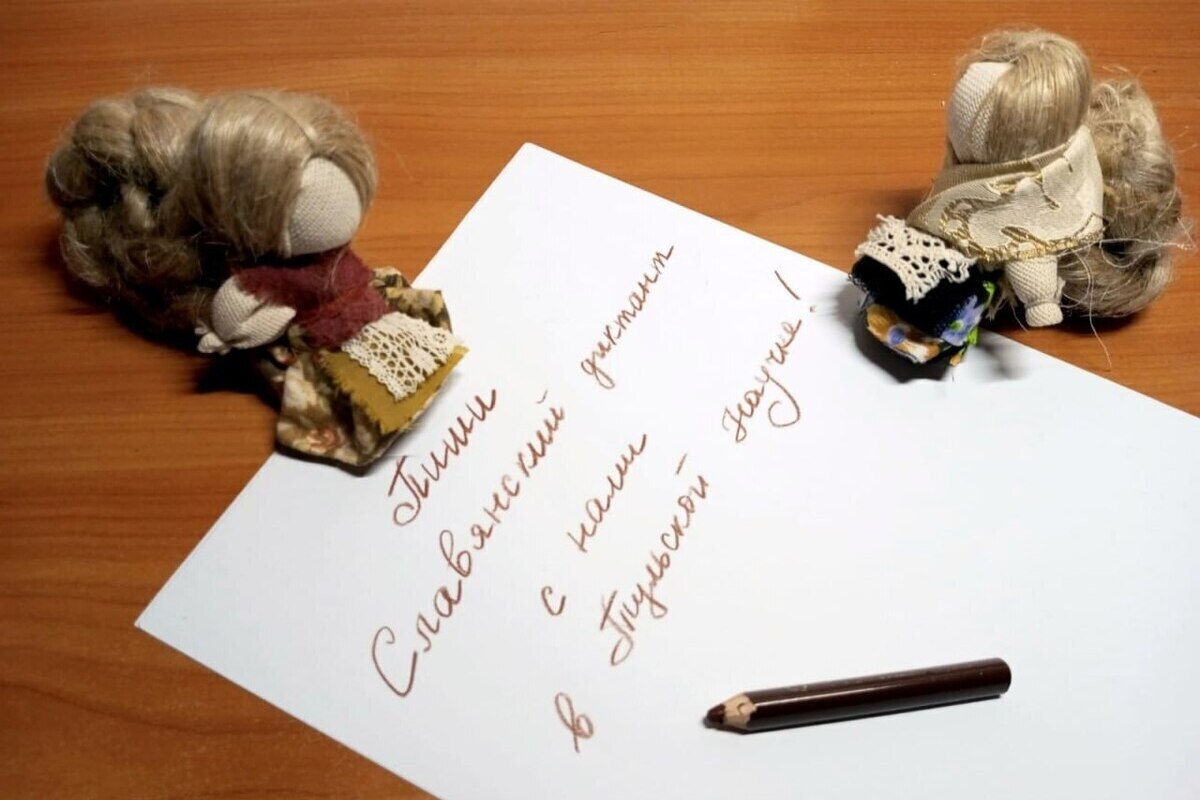 Пиши
Славянский диктант
с нами
в Тульской научке!